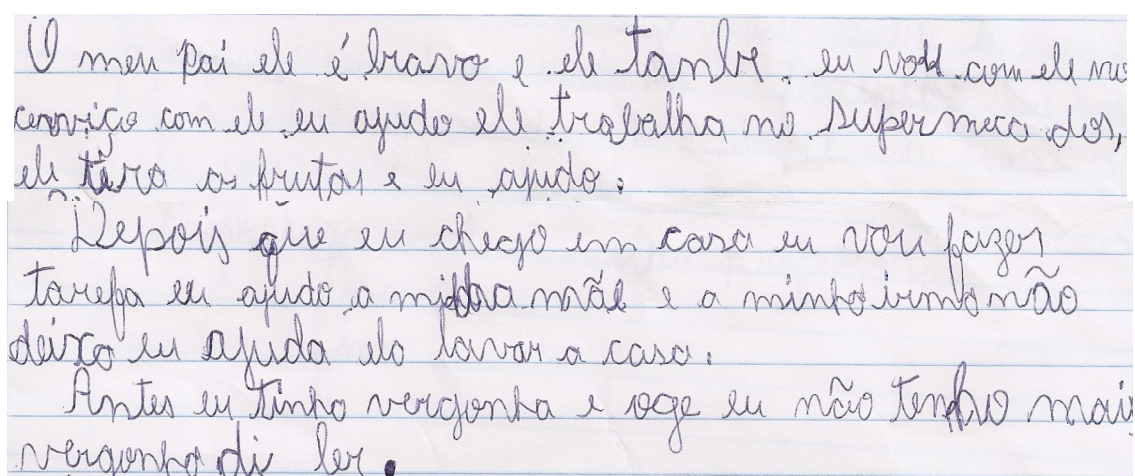 O meu pai ele é bravo e ele tambe. eu vou com ele no
cerviço com ele eu ajudo ele trabalha no supermeca dos,
ele tira as frutas e eu ajudo.
Depois que eu chego em casa eu vou fazer
tarefa eu ajudo a minha mãe e a minha irmo não
deixa eu ajuda ela lavar a casa.
Antes eu tinha vergonha e oge eu não tenho mais
vergonha di ler.